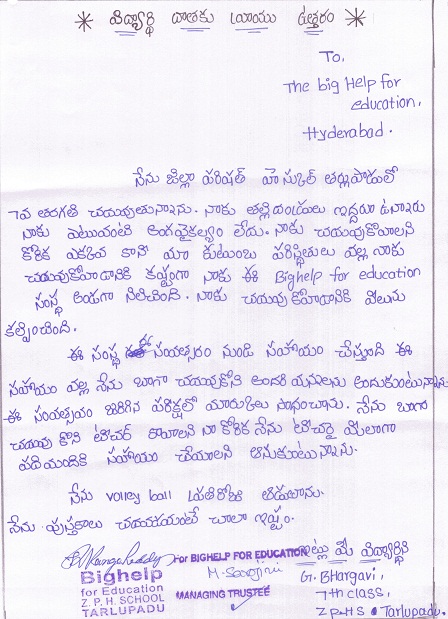 * విద్యార్థి దాతకు వ్రాయు ఉత్తరం *
To,
The big Help for
education,
Hyderabad.
నేను జిల్లా పరిషత్ హైస్కూల్ తర్లుపాడులో
7వ తరగతి చదువుతున్నాను. నాకు తల్లిదండ్రులు ఇద్దరూ ఉన్నారు
నాకు ఎటువంటి అంగవైకల్యం లేదు. నాకు చదువుకోవాలని
కోరిక ఎక్కువ కాని మా కుటుంబ పరిస్థితుల వల్ల నాకు
చదువుకోవడానికి కష్టంగా నాకు ఈ Bighelp for education
సంస్థ అండగా నిలిచింది. నాకు చదువుకోవడానికి వీలును
కల్పించింది.
ఈ సంస్థ సంవత్సరం నుండి సహాయం చేస్తుంది ఈ
సహాయం వల్ల నేను బాగా చదువుకొని అందరి మన్ననలను అందుకుంటున్నాను.
ఈ సంవత్సరం జరిగిన పరిక్షలో మార్కులు సాధించాను. నేను బాగా
చదువు కొని టీచర్ కావాలని నా కోరిక నేను టీచరై మీలాగా
పదిమందికి సహాయం చేయాలని అనుకుంటున్నాను.
నేను volley ball ప్రతిరోజు ఆడుతాను.
నేను పుస్తకాలు చదవడమంటే చాలా ఇష్టం.
For BIGHELP FOR EDUCATION ఇట్లు మీ విద్యార్థిని
Bighelp
for Education
Z. P. H. SCHOOL
TARLUPADU
M. Sarojini
MANAGING TRUSTEE
G. Bhargavi,
7th class,
ZPHS Tarlupadu.